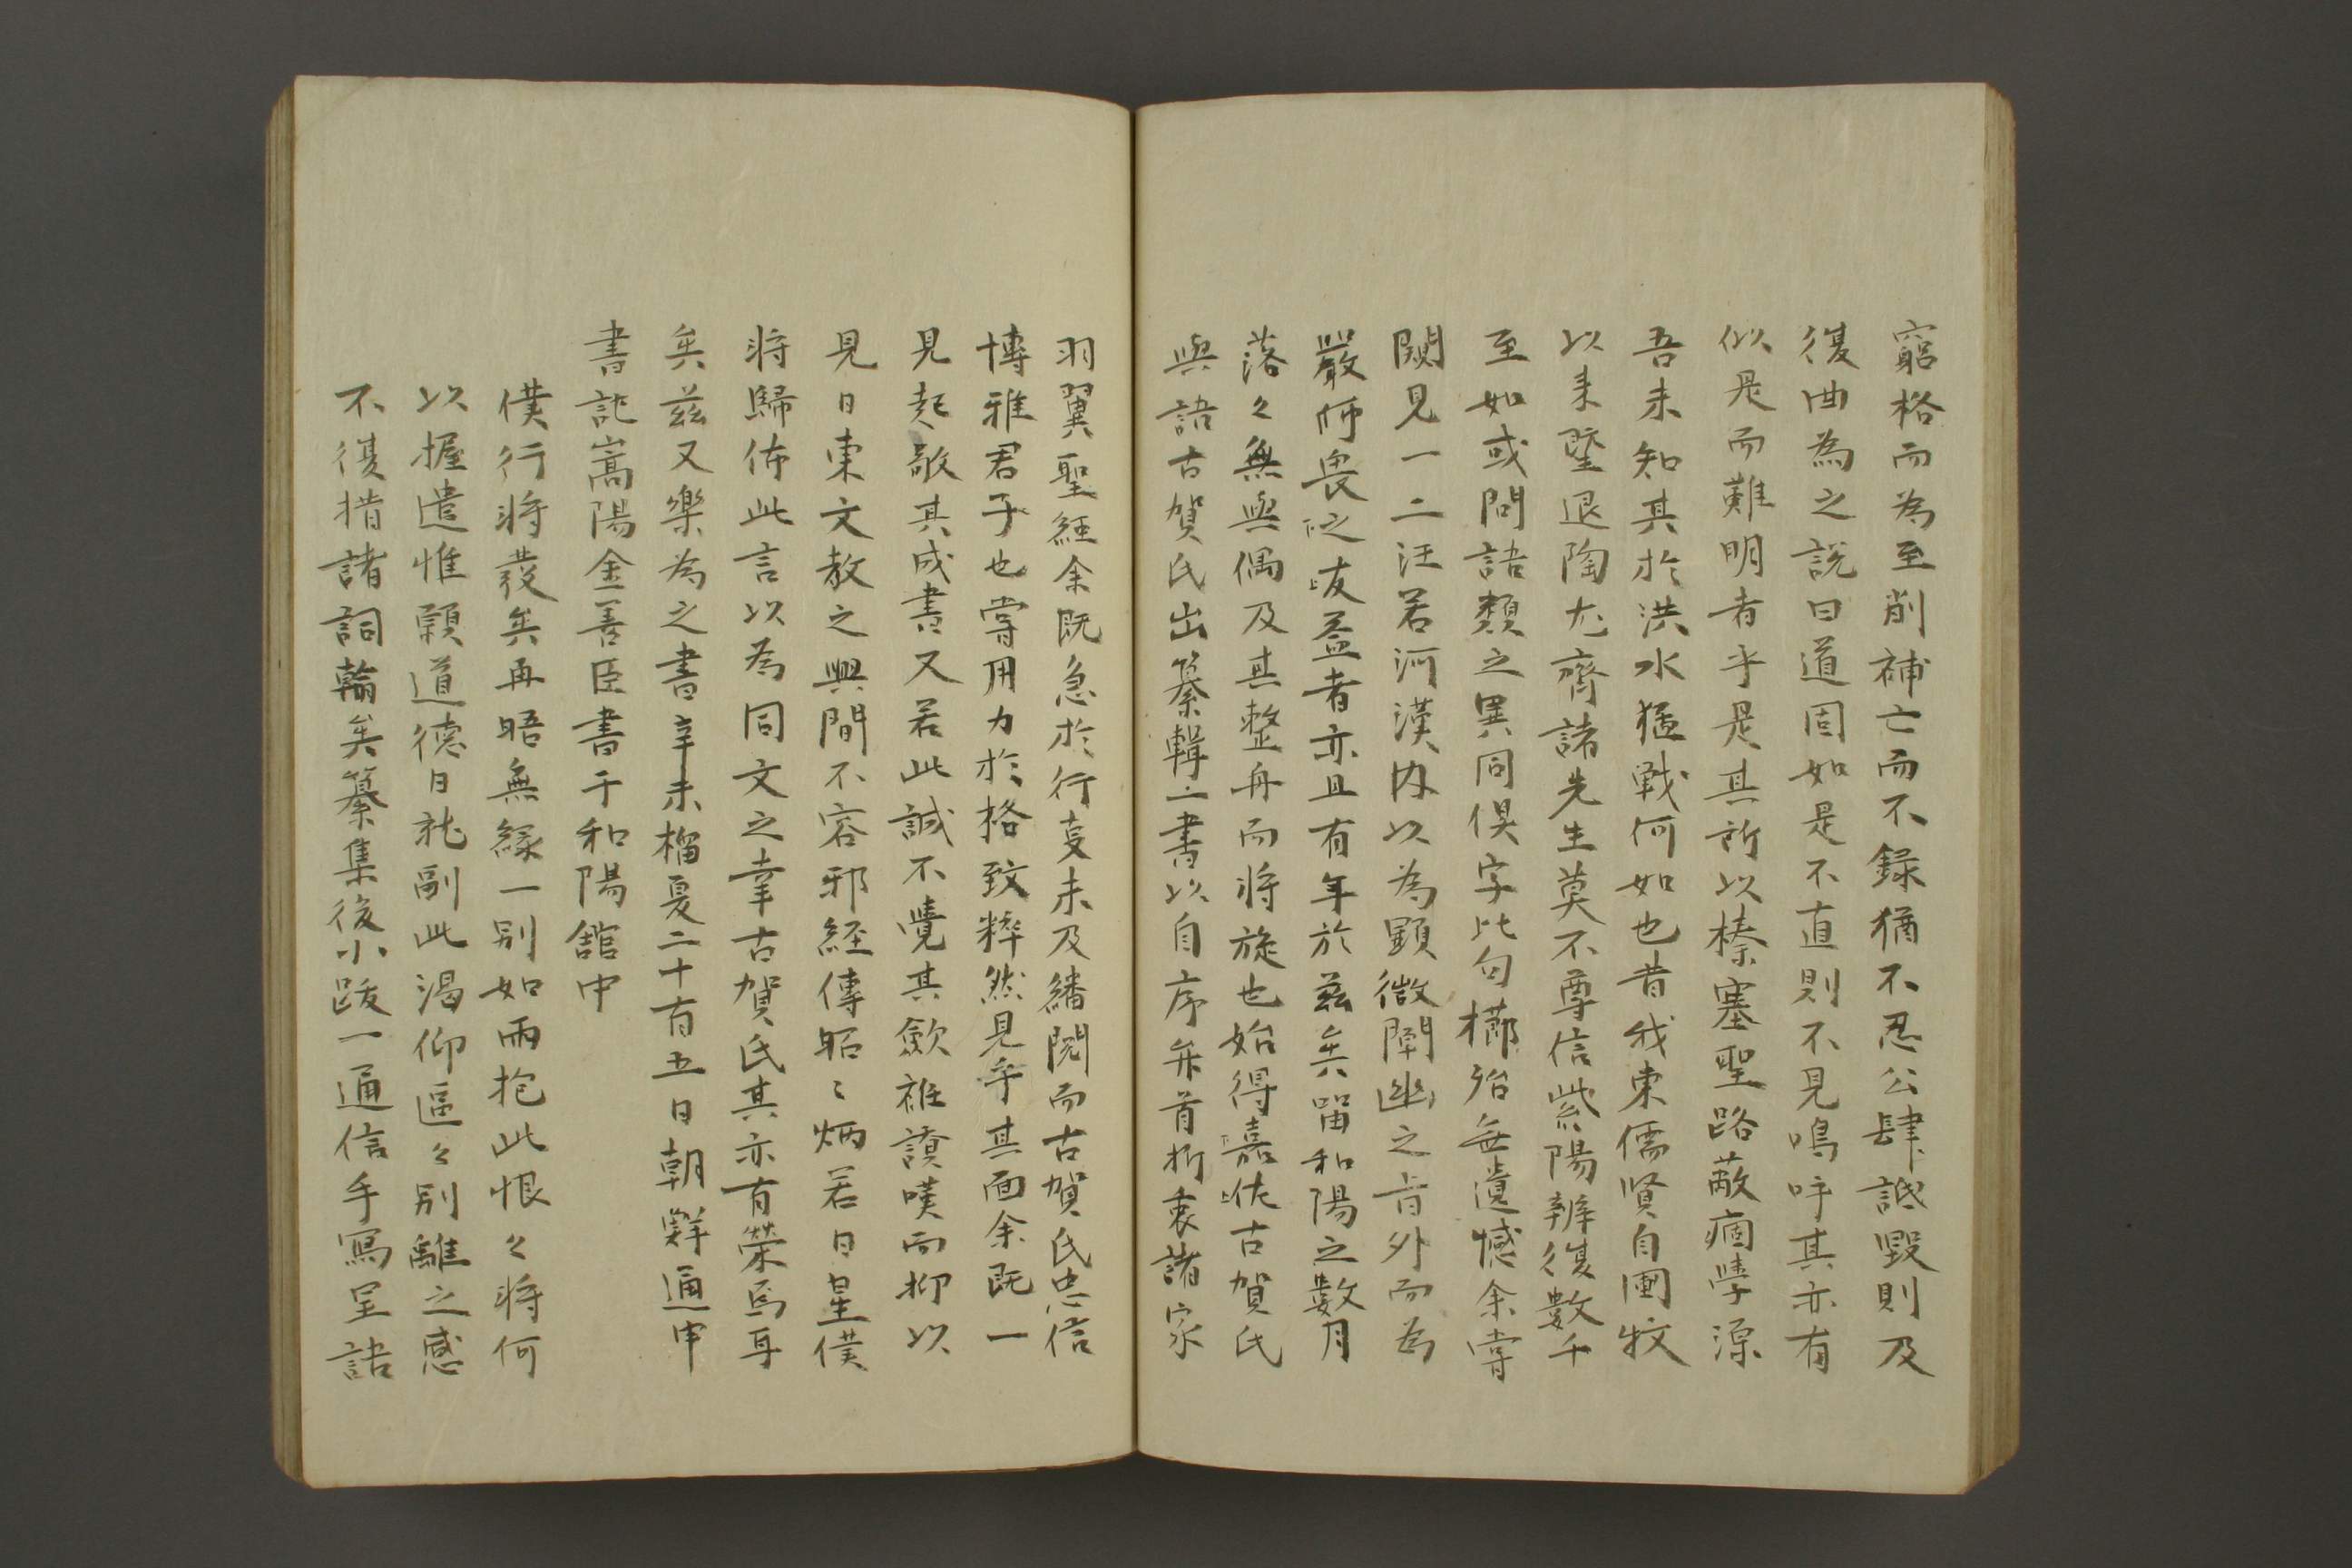 窮格而為至削補亡而不錄猶不忍公肆詆毀則及
復曲為之說曰道固如是不直則不見嗚呼其亦有
似是而難明者乎是其所以榛塞聖路蔽痼學源
吾未知其於洪水猛戰何如也昔我東儒賢自圃牧
以来曁退陶尤齋諸先生莫不尊信紫陽辨復數千
至如或問語類之異同俱字比句櫛殆無遺憾余嘗
閱見一二汪若河漢內以為顯微闡幽之旨外而為
嚴師畏之友益者亦且有年於茲矣留和陽之數月
落々無與偶及其整舟而將旋也始得嘉佐古賀氏
與語古賀氏出纂輯二書以自序弁首折衷諸家
羽翼聖經余既急於行事未及繙閱而古賀氏忠信
博雅君子也嘗用力於格致粹然見乎其面余既一
見起敬其成書又若此誠不覺其歛袵讃嘆而抑以
見日東文教之興間不容邪經傳昭々炳若日星僕
將歸佈此言以為同文之幸古賀氏其亦有榮焉耳
矣茲又樂為之書辛未榴夏二十有五日朝鮮通申
書記嵩陽金善臣書于和陽舘中
僕行將發矣再晤無緣一別如雨抱此恨々將何
以握遣惟願道德日就副此渴仰區々別離之感
不復措諸詞翰矣纂集後小跋一通信手寫呈語